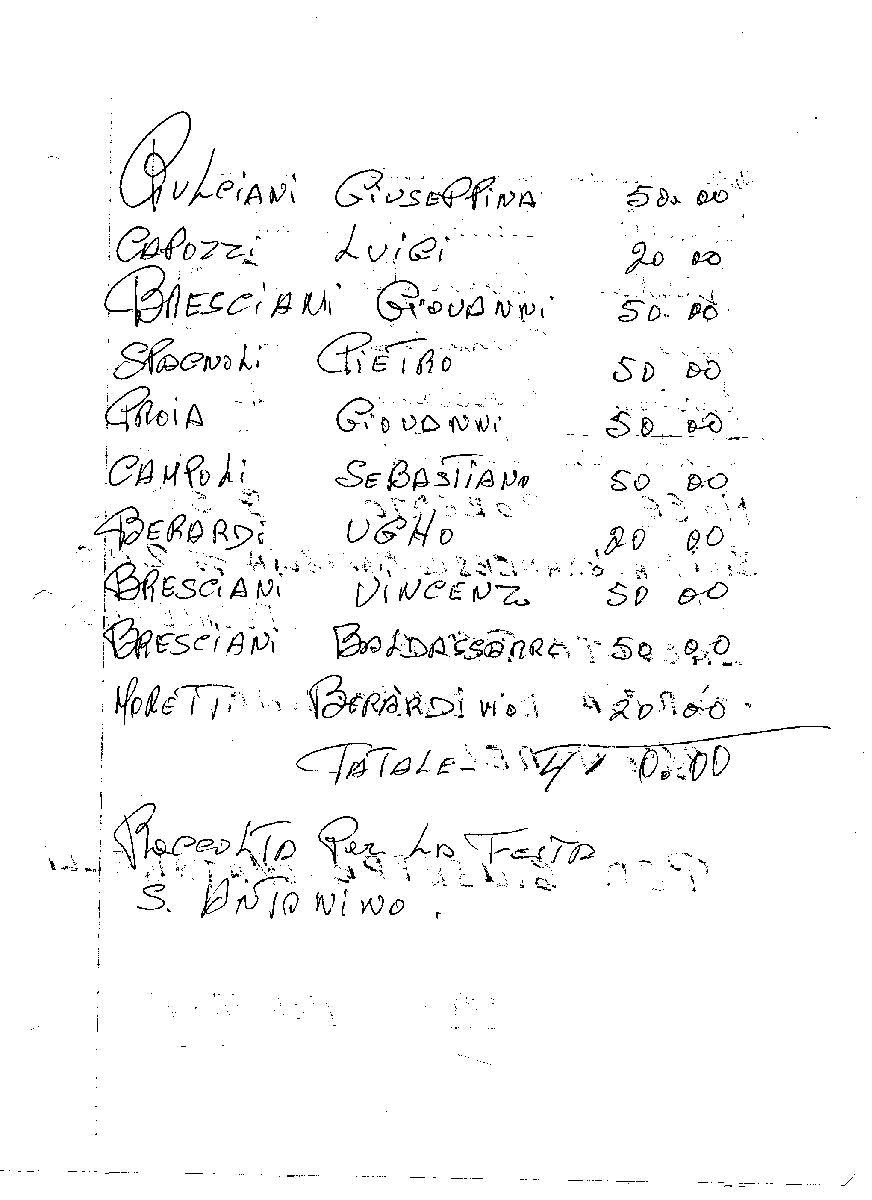 GIULCIANI GIUSEPPINA 50.00
CAPOZZI LUIGI 20 00
BRESCIANI GIOVANNI 50.00
SPAGNOLI PIETRO 50 00
PROIA GIOVANNI 50 00
CAMPOLI SEBASTIANO 50 00
BERARDI UGHO 20 00
BRESCIANI VINCENZO 50 00
BRESCIANI BALDASSARRE 50 00
MORETTI BERARDINO 20 00
TATALE 410.00
RACCOLTA PER LA FESTA
S. ANTONINO.